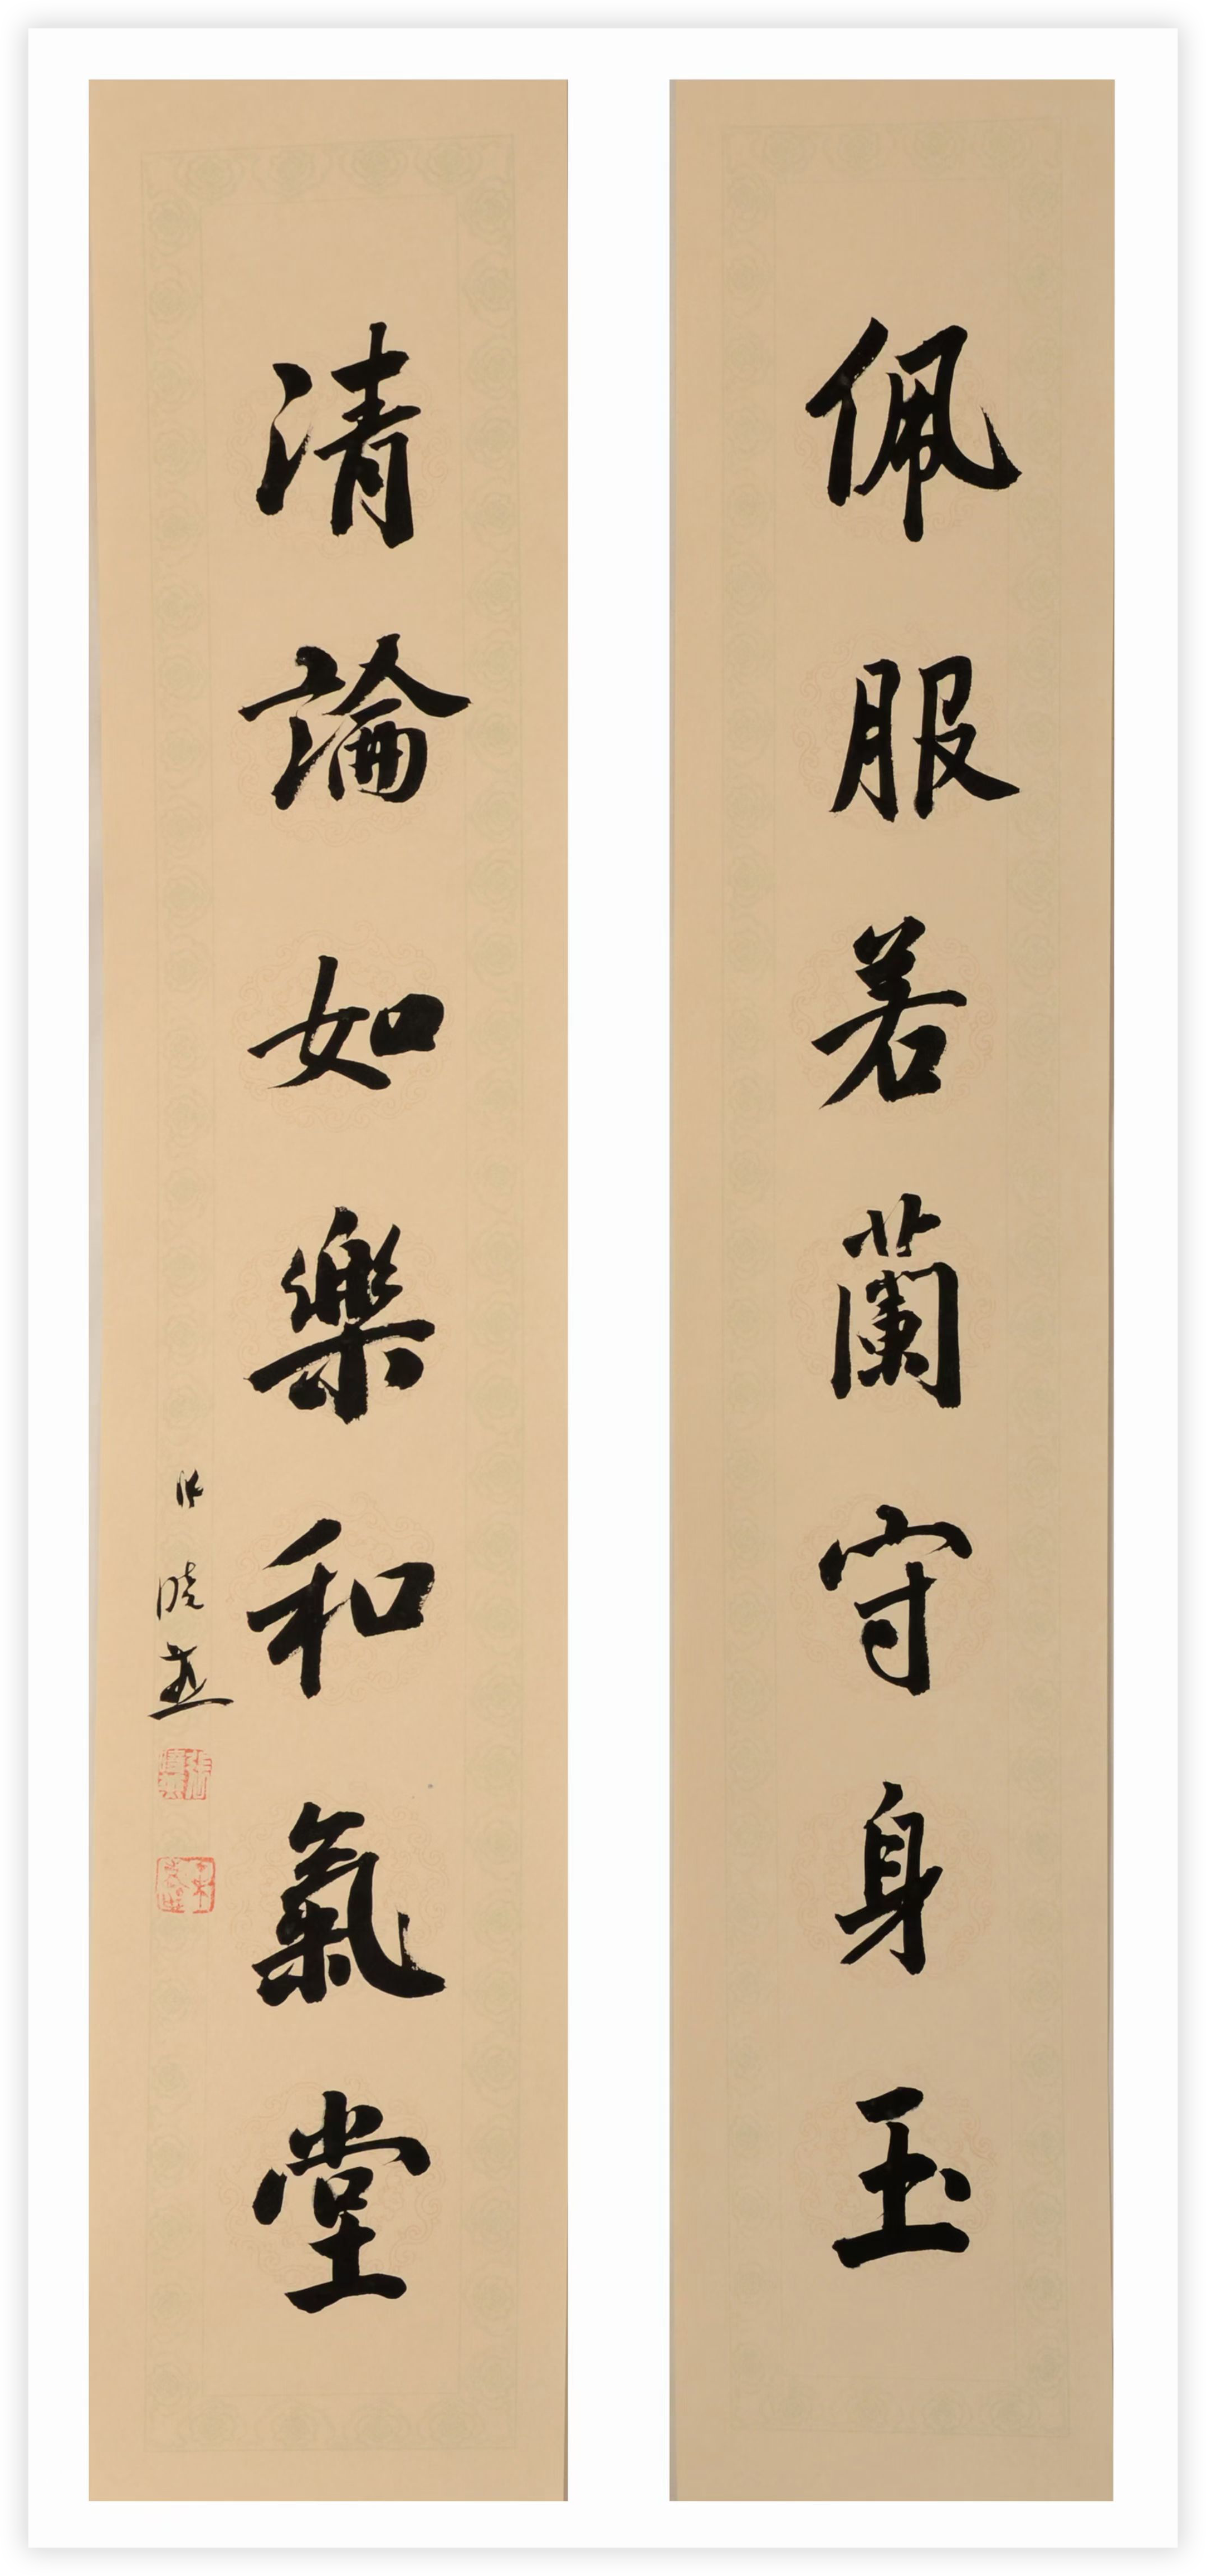 佩服若蘭守身玉
清論如樂和氣堂